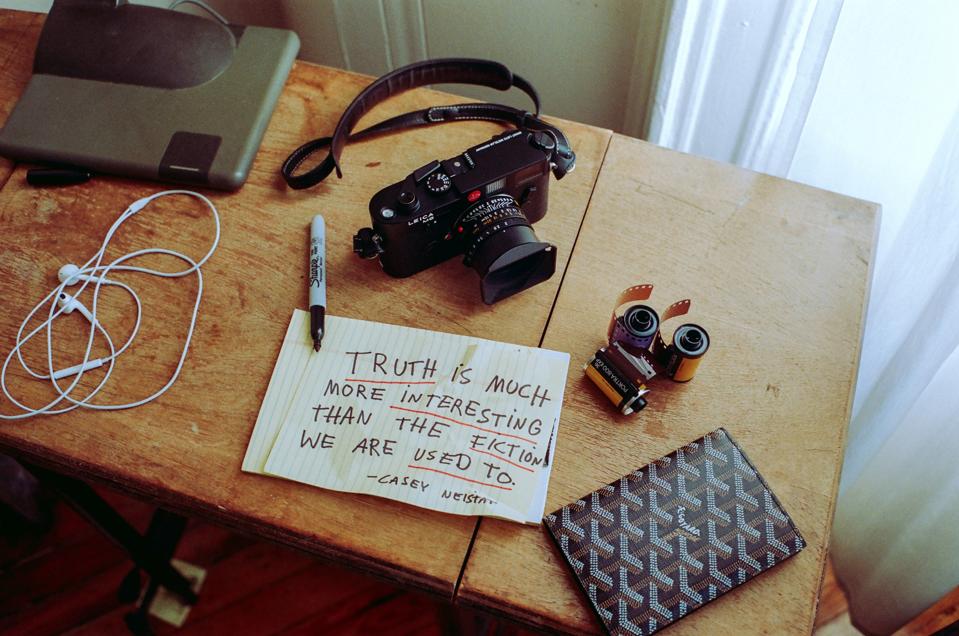 LEICA
Sharpie
TRUTH IS MUCH
MORE INTERESTING
THAN THE FICTION
WE ARE USED TO.
-CASEY NEISTAT
PORTRA 800